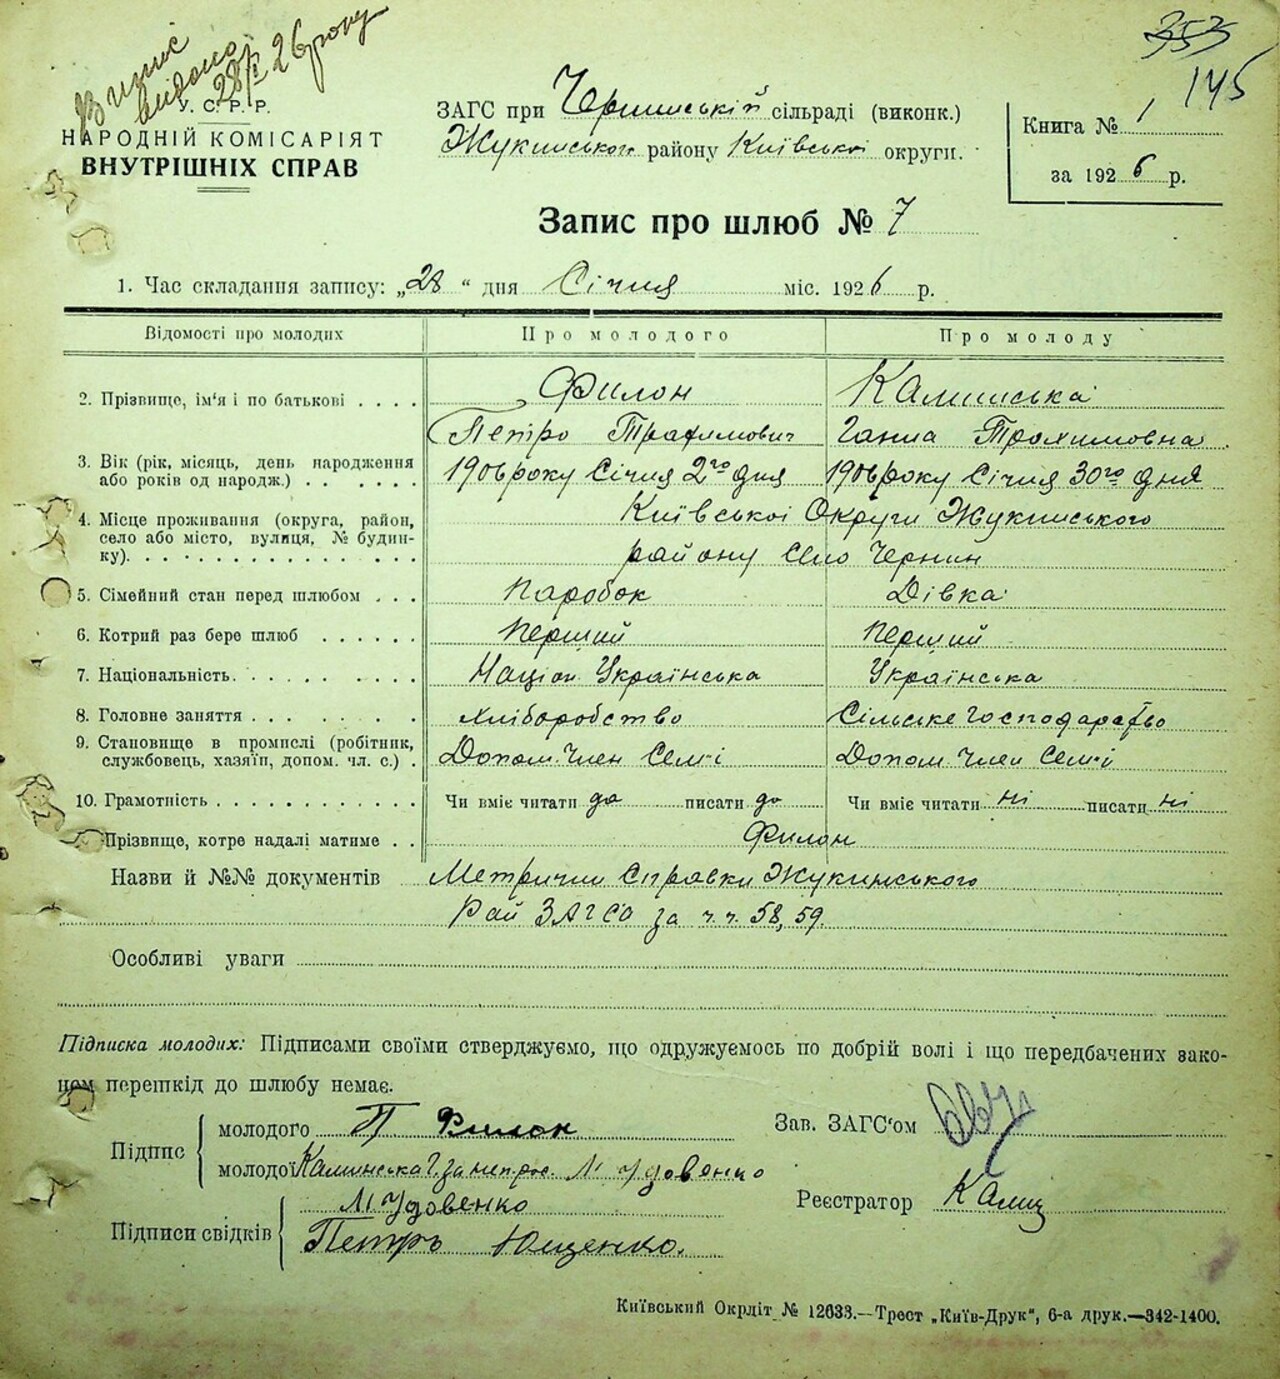 Випис
видано
28/I 26 року
353
145
У. С. Р. Р.
НАРОДНІЙ КОМІСАРІЯТ
ВНУТРІШНІХ СПРАВ
ЗАГС при Чернинській сільраді (виконк.)
Жукинського району Київської округи.
Книга № 1
за 1926 р.
Запис про шлюб № 7
1. Час складання запису: „28 “ дня Січня міс. 1926 р.
Відомості про молодих Про молодого Про молоду
2. Прізвище, ім'я і по батькові . . . . Филон Каминська
Петро Трафимович Ганна Трохимовна
3. Вік (рік, місяць, день народження або років од народж.) . . . . . . 1906 року Січня 2го дня 1906 року Січня 30го дня
4. Місце проживання (округа, район, Київської Округи Жукинського
село або місто, вулиця, № будин-
ку). . . . . . . . . . . . . . району село Чернин
5. Сімейний стан перед шлюбом . . . Паробок Дівка
6. Котрий раз бере шлюб . . . . . . Перший Перший
7. Національність. . . . . . . . . Націон. Українська Українська
8. Головне заняття . . . . . . . Хліборобство Сільське Господарство
9. Становище в промислі (робітник,
службовець, хазяїн, допом. чл. с.) . Допом. Член Семї Допом. Член Семї
10. Грамотність . . . . . . . . . . . Чи вміє читати да писати да Чи вміє читати ні писати ні
Прізвище, котре надалі матиме . . Филон
Назви й №№ документів Метрични Справки Жукинського
Рай ЗАГСО за ч. ч. 58, 59.
Особливі уваги
Підписка молодих: Підписами своїми стверджуємо, що одружуємось по добрій волі і що передбачених зако-
ном перешкід до шлюбу немає.
Підпис
молодого П Филон
молодої Каминська Г. за непис. М Удовенко
Зав. ЗАГС'ом
Підписи свідків
М Удовенко
Петръ Ющенко.
Реєстратор Камин
Київський Окрліт № 12633.—Трест „Київ-Друк“, 6-а друк.—342-1400.